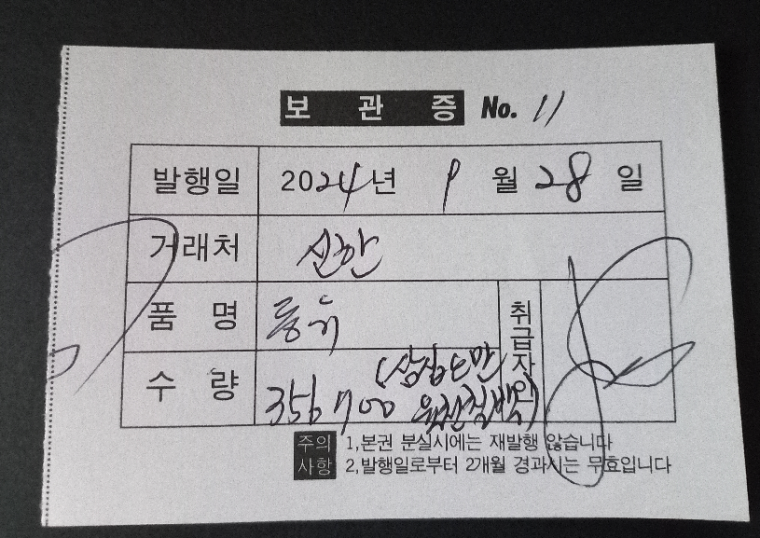 보 관 증 No. 11
발행일 2024년 9 월 28 일
거래처 신한
품 명
취급자인
수 량 356700 (삼십오만 육천칠백)
주의사항
1,본권 분실시에는 재발행 않습니다
2,발행일로부터 2개월 경과시는 무효입니다